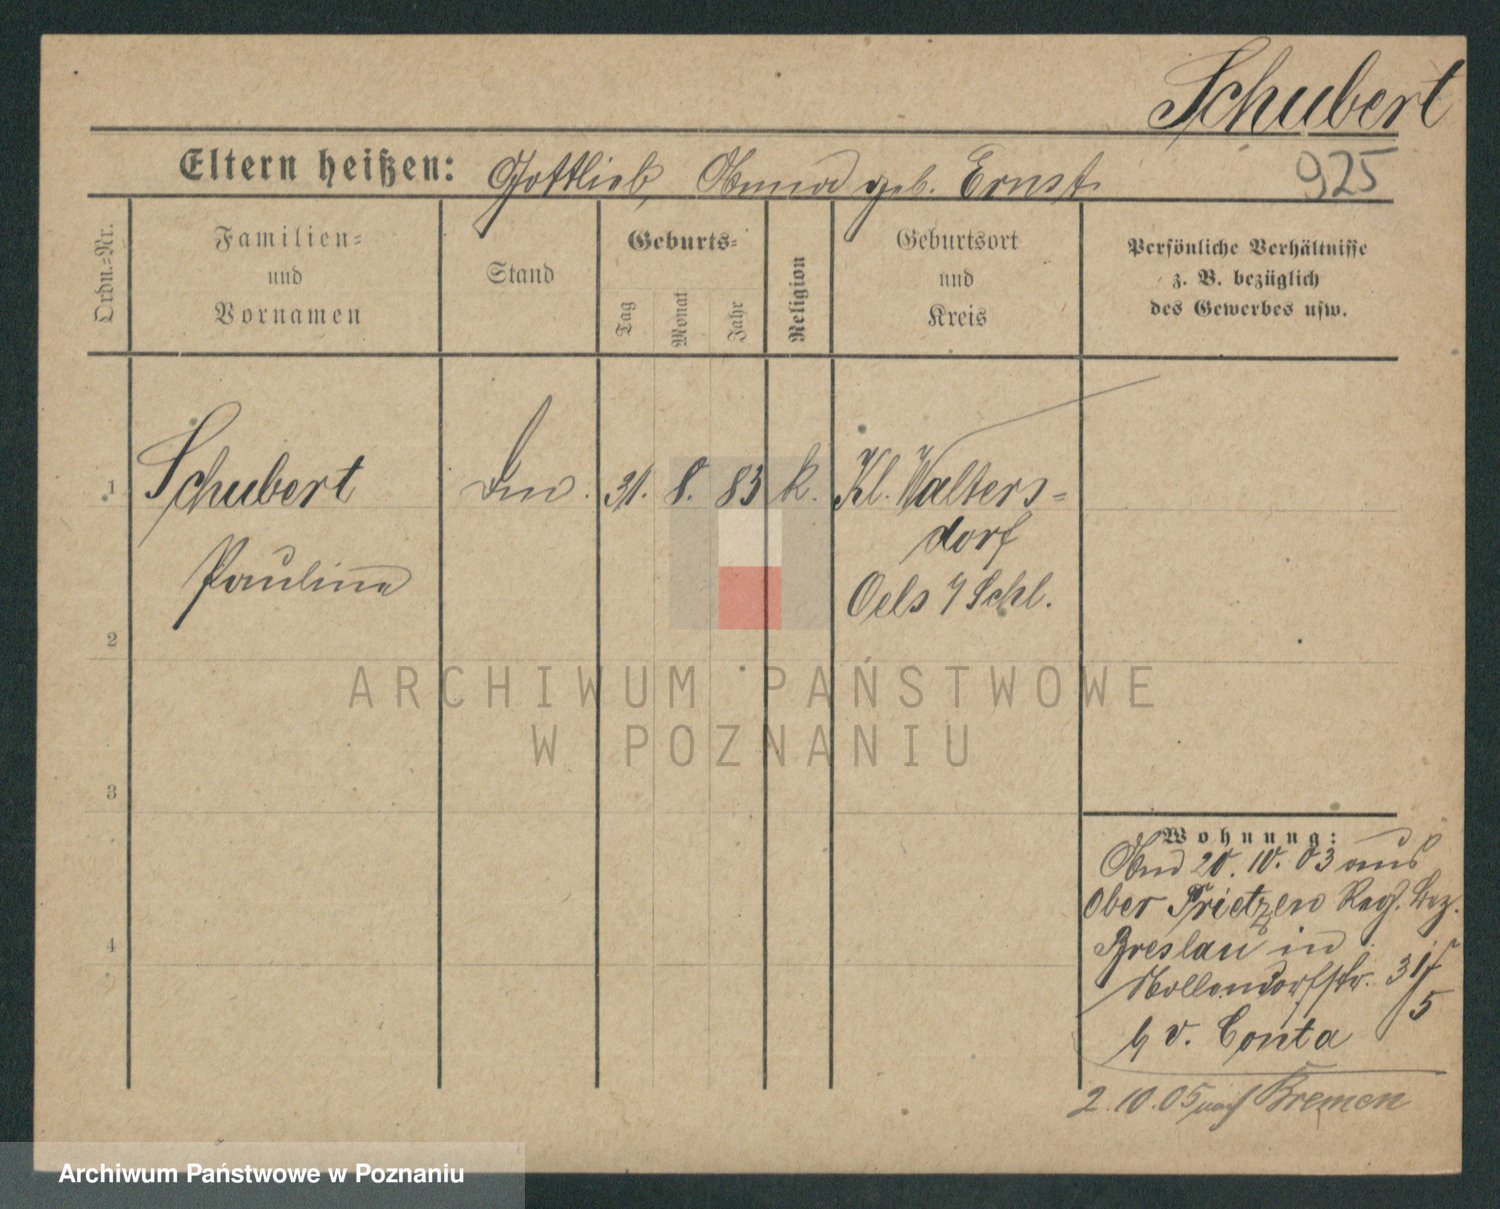 Schubert
925
Eltern heißen: Gottlieb, Anna geb. Ernst
Ordn.-Nr.
Familien-
und
Vornamen
Stand
Geburts-
Tag
Monat
Jahr
Religion
Geburtsort
und
Kreis
Persönliche Verhältnisse
z. B. bezüglich
des Gewerbes usw.
1 Schubert 31. 8. 83 k. Kl. Walters-
dorf
Pauline
Oels i/Schl.
2
ARCHIWUM PAŃSTWOWE
W POZNANIU
3
4
Wohnung:
20. 10. 03 aus
Ober Prietzen Reg. Bez.
Breslau in
Nollendorfstr. 31/5
b/ v. Conta
2.10.05 nach Bremen
Archiwum Państwowe w Poznaniu